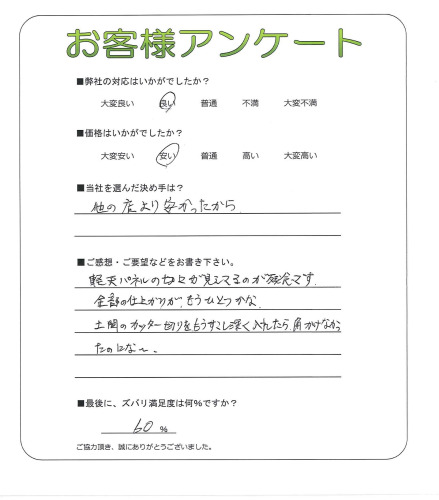 お客様アンケート
■弊社の対応はいかがでしたか？
大変良い 良い 普通 不満 大変不満
■価格はいかがでしたか？
大変安い 安い 普通 高い 大変高い
■当社を選んだ決め手は？
他の店より安かったから
■ご感想・ご要望などをお書き下さい。
軽天パネルの切口が見えてるのが残念です.
全部の仕上がりが、もうひとつかな.
土間のカッター切りをもうすこし深く入れたら、角かけなかっ
たのにな〜.
■最後に、ズバリ満足度は何％ですか？
60 %
ご協力頂き、誠にありがとうございました。